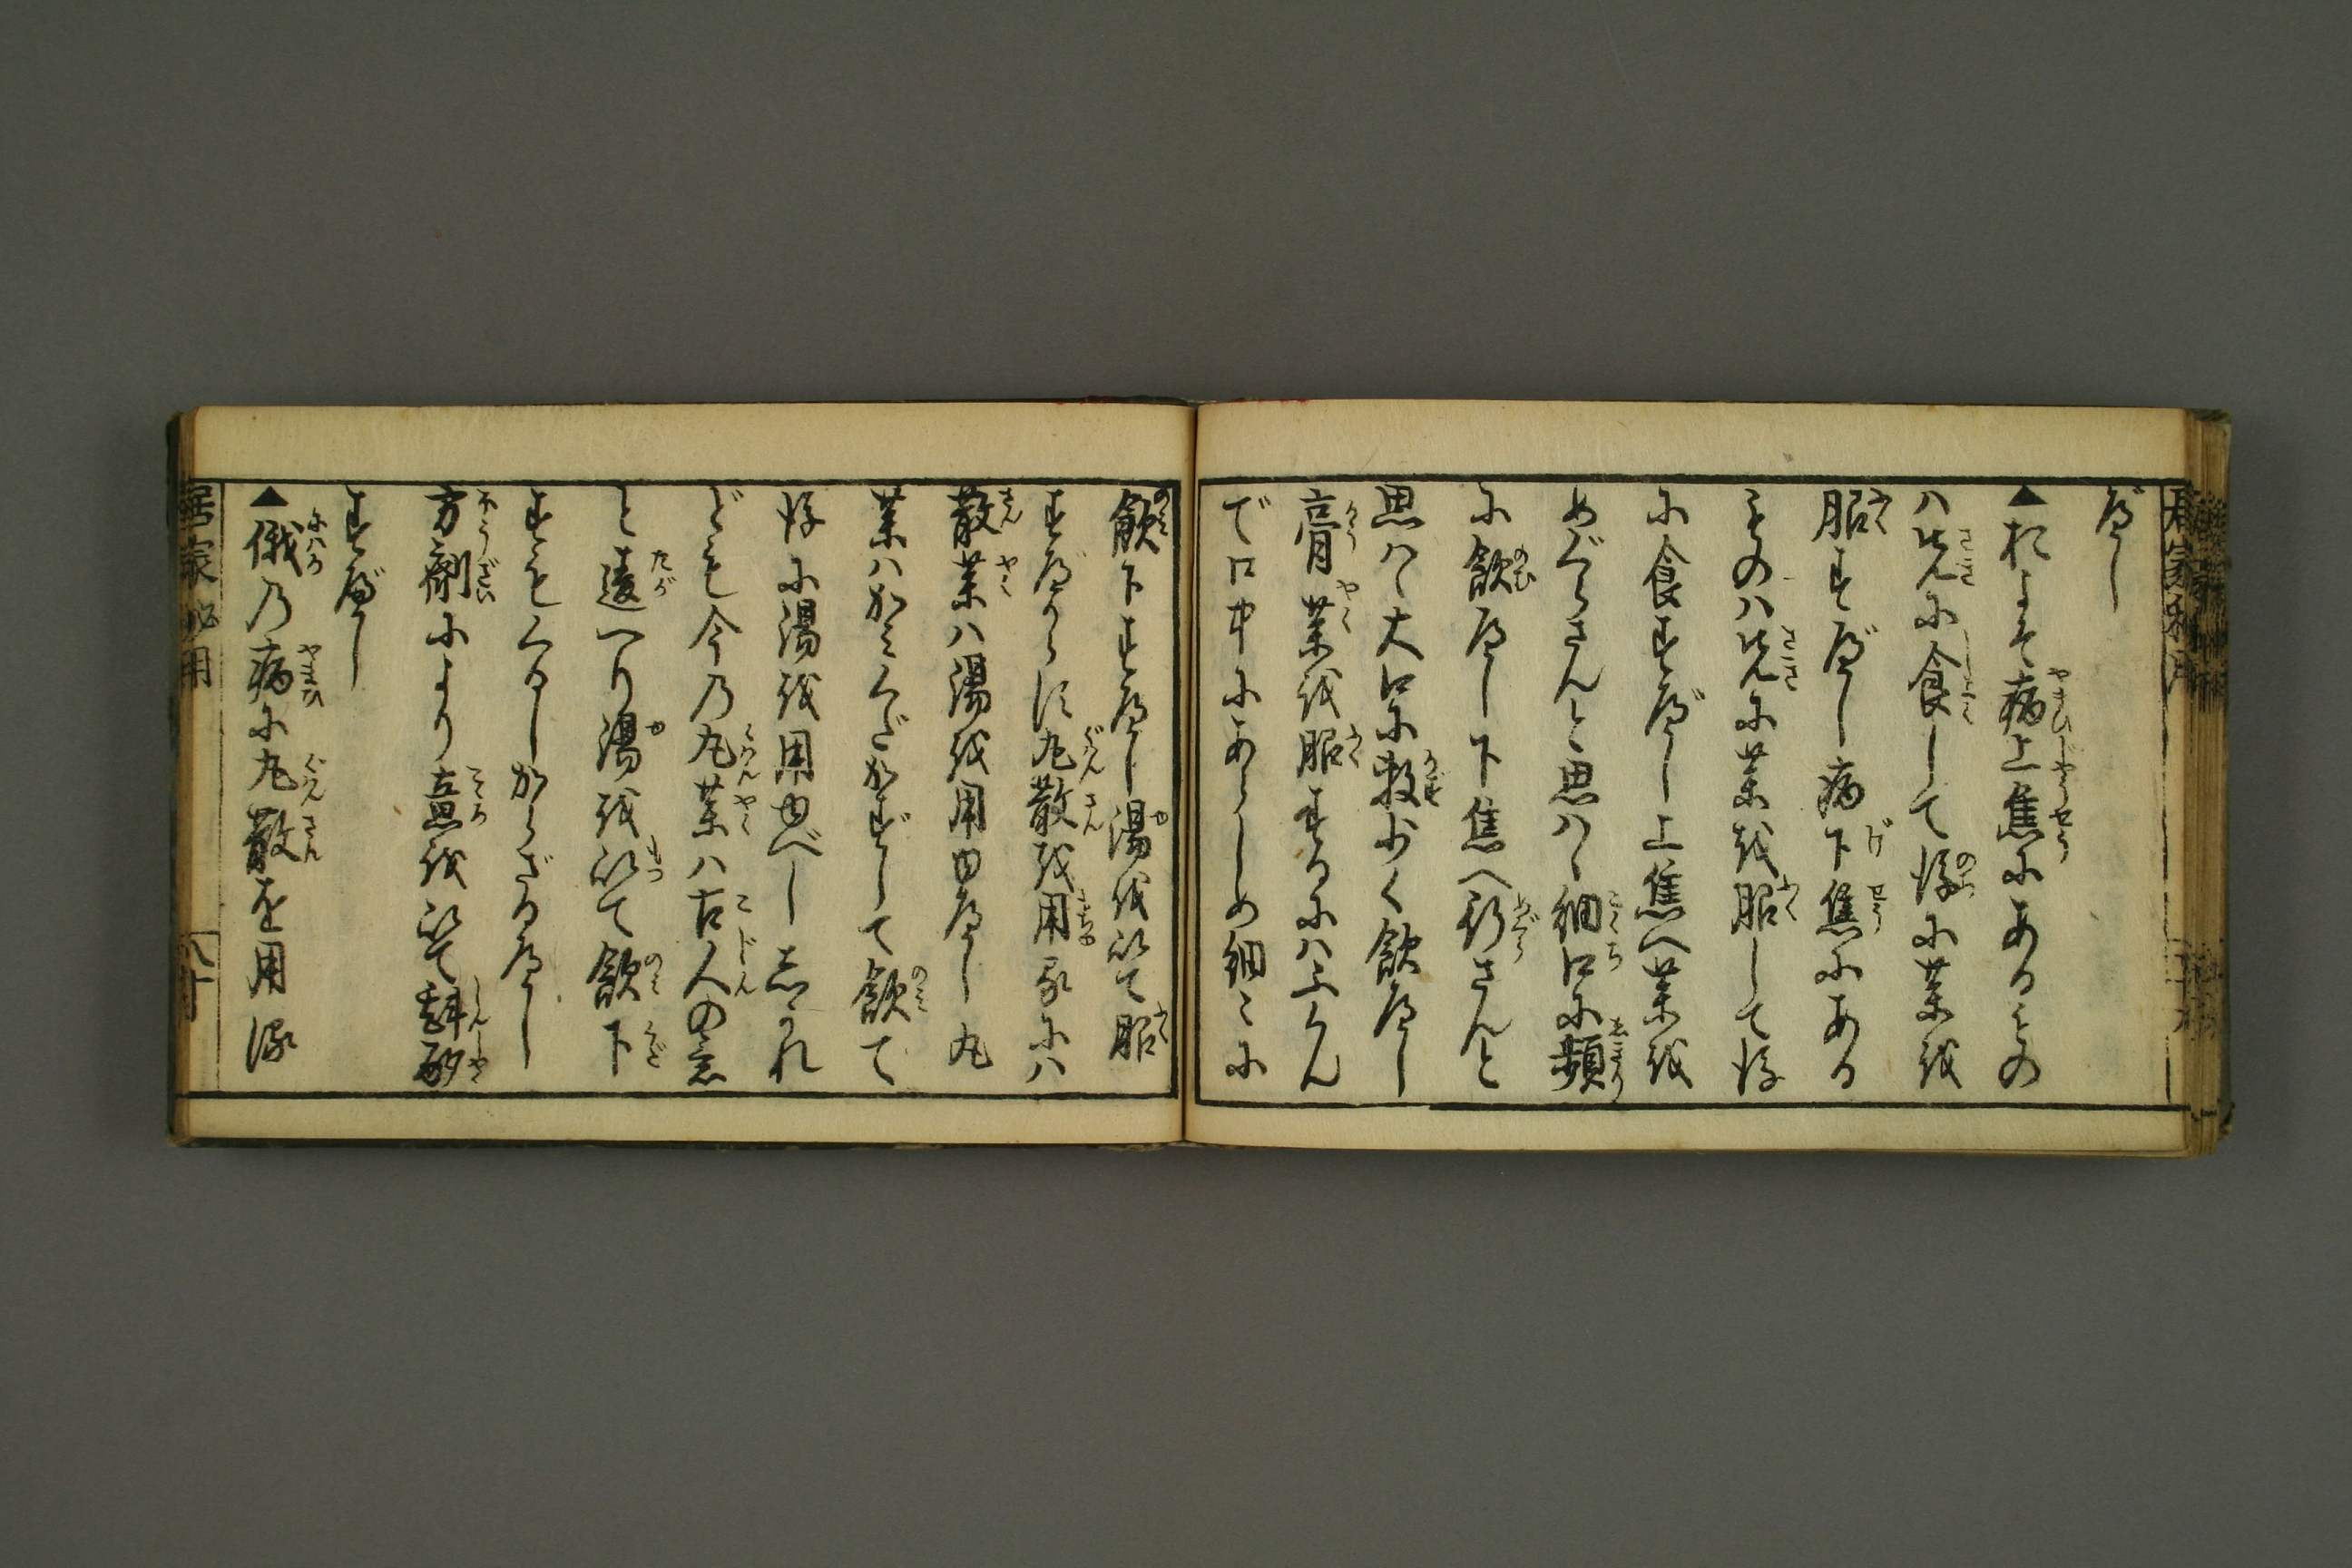 べし
▲およそ病上焦にあるもの
ハ先に食して後に薬を
服すべし病下焦にある
ものハ先に薬を服して後
に食すべし上焦へ薬を
めぐらさんと思ハヾ細口に頻
に飲べし下焦へ行さんと
思ハヾ大口に数少く飲べし
膏薬を服するにハふくん
で口中にあらしめ細々に
飲下すべし湯を以て服
すべからず丸散を用るにハ
散薬ハ湯を用ゆべし丸
薬ハかみくだかずして飲て
後に湯を用ゆべし志かれ
ども今乃丸薬ハ古人の意
と違へり湯を以て飲下
すもくるしからざるべし
方剤により意を以て斟酌
すべし
▲俄乃病に丸散を用る
居家必用
八十